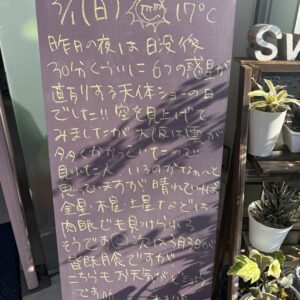 3/1(日) 17℃
昨日の夜は日没後
30分くらいに6つの惑星が
直列する天体ショーの日
でした!!空を見上げて
みましたが 大阪は雲が
多くかかっていたので
見れた人いるのかなぁ〜と
思っていますが晴れていれば
金星・木星・土星などは
肉眼でも見つけられる
そうです 次の3月3日が
皆既月食ですが
こちらもお天気が
ですが
SW